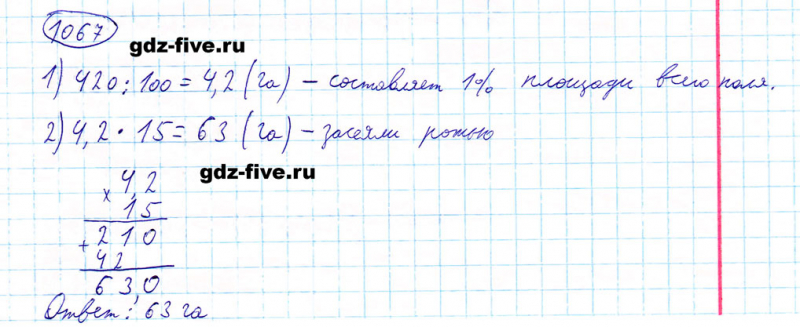 1067
gdz-five.ru
1) 420 : 100 = 4,2 (га) – составляет 1% площади всего поля.
2) 4,2 · 15 = 63 (га) – засеяли рожью
gdz-five.ru
× 4,2
15
+ 210
42
63,0
Ответ: 63 га